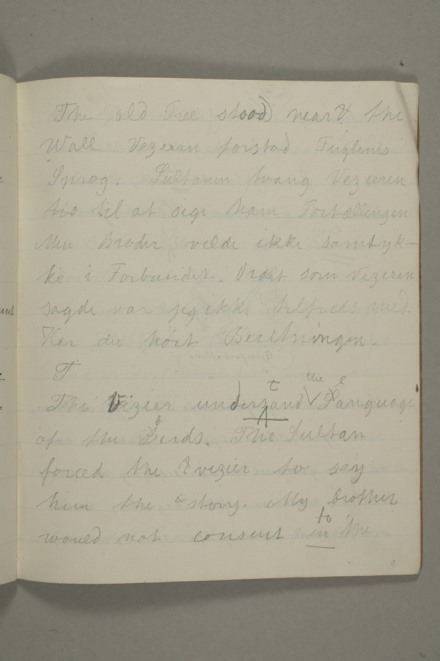 The old Tree stood near the
Wall Vezeren forstod Fuglenes
Sprog. Sultanen tvang Vezeren
til at sige ham Fortællingen
Min Broder vilde ikke samtyk-
ke i Forbundet. Vidst som Vezeren
sagde var jeg ikke tilfreds med.
Har du hört Beretningen.
T
The Vizier understand the Language
of the Birds. The Sultan
forced the vezier to say
him the story. My brother
would not consent in to the